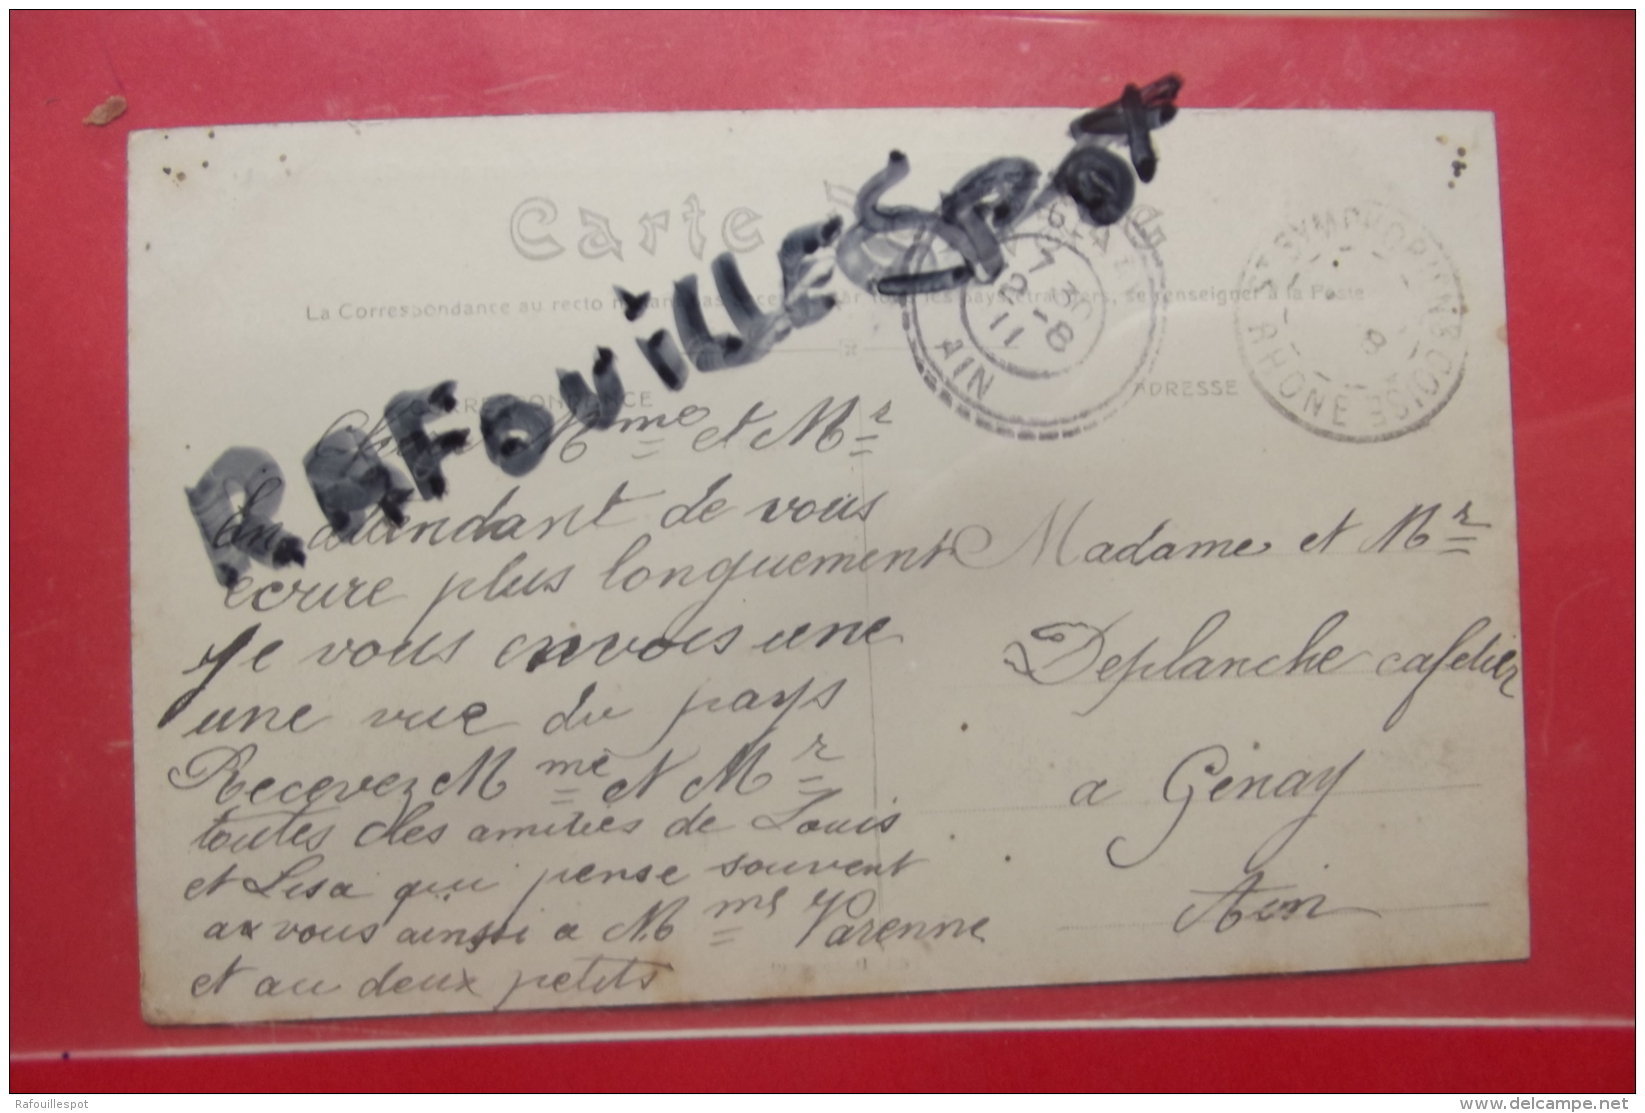 Carte
RAFOUILLESPOT
La Correspondance au recto n'étant pas acceptée par tous les pays étrangers, se renseigner à la Poste
CORRESPONDANCE
ADRESSE
AIN
7 30
8 - 8
11
ST SYMPHORIEN S COISE
RHONE
8
Chère Mme et Mr
En atendant de vous
ecrire plus longuement
Je vous envois une
une vue du pays
Recevez Mme et Mr
toutes les amitiés de Louis
et Lisa qui pense souvent
a vous ainsi a Mme Varenne
et au deux petits
Madame et Mr
Deplanche cafetier
a Génay
Ain
Rafouillespot
www.delcampe.net